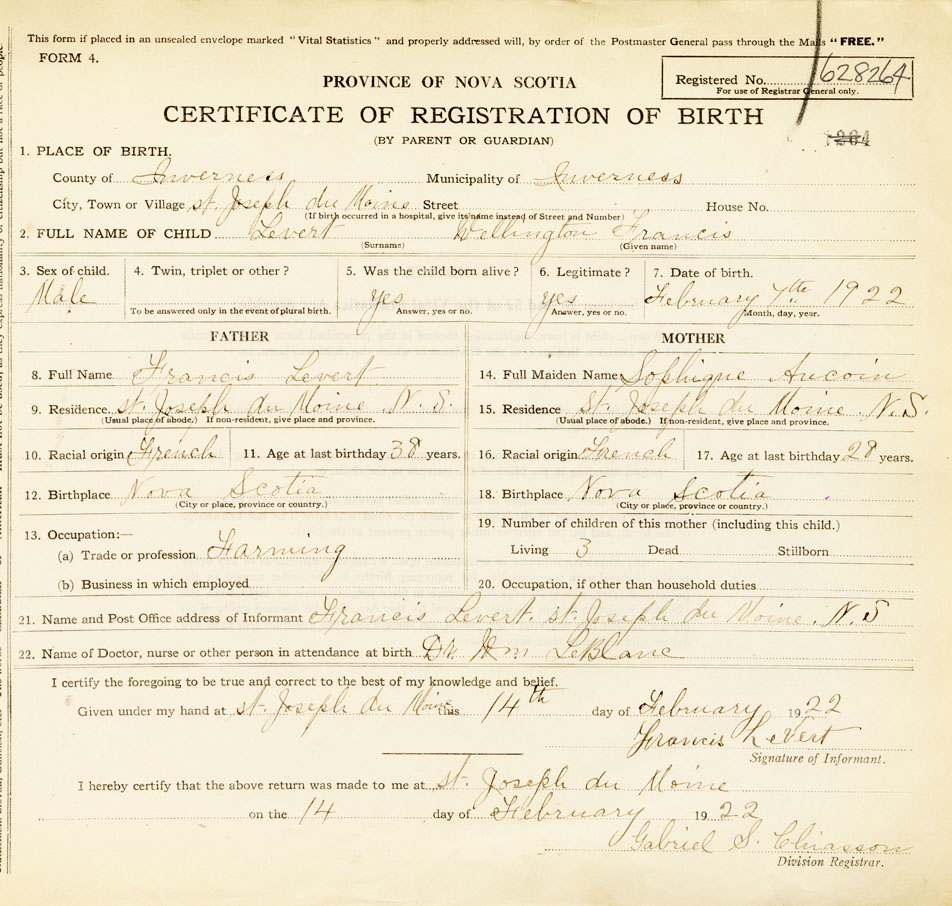 This form if placed in an unsealed envelope marked "Vital Statistics" and properly addressed will, by order of the Postmaster General pass through the Mails "FREE."
FORM 4.
Registered No. 628264
For use of Registrar General only.
PROVINCE OF NOVA SCOTIA
CERTIFICATE OF REGISTRATION OF BIRTH
(BY PARENT OR GUARDIAN)
1. PLACE OF BIRTH.
County of Inverness Municipality of Inverness
City, Town or Village St. Joseph du Moine Street House No.
(If birth occurred in a hospital, give its name instead of Street and Number)
2. FULL NAME OF CHILD Levert Wellington Francis
(Surname) (Given name)
3. Sex of child. 4. Twin, triplet or other? 5. Was the child born alive? 6. Legitimate? 7. Date of birth.
Male yes yes February 7th 1922
To be answered only in the event of plural birth. Answer, yes or no. Answer, yes or no. Month, day, year.
FATHER MOTHER
8. Full Name Francis Levert 14. Full Maiden Name Sophique Aucoin
9. Residence St. Joseph du Moine N. S. 15. Residence St. Joseph du Moine. N. S.
(Usual place of abode.) If non-resident, give place and province. (Usual place of abode.) If non-resident, give place and province.
10. Racial origin French 11. Age at last birthday 38 years. 16. Racial origin French 17. Age at last birthday 28 years.
12. Birthplace Nova Scotia 18. Birthplace Nova Scotia
(City or place, province or country.) (City or place, province or country.)
13. Occupation:— 19. Number of children of this mother (including this child.)
(a) Trade or profession Farming Living 3 Dead Stillborn
(b) Business in which employed 20. Occupation, if other than household duties
21. Name and Post Office address of Informant Francis Levert. St. Joseph du Moine. N. S
22. Name of Doctor, nurse or other person in attendance at birth Dr Wm LeBlanc
I certify the foregoing to be true and correct to the best of my knowledge and belief.
Given under my hand at St. Joseph du Moine this 14th day of February 1922
Francis LeVert
Signature of Informant.
I hereby certify that the above return was made to me at St. Joseph du Moine
on the 14 day of February 1922
Gabriel S. Chiasson
Division Registrar.